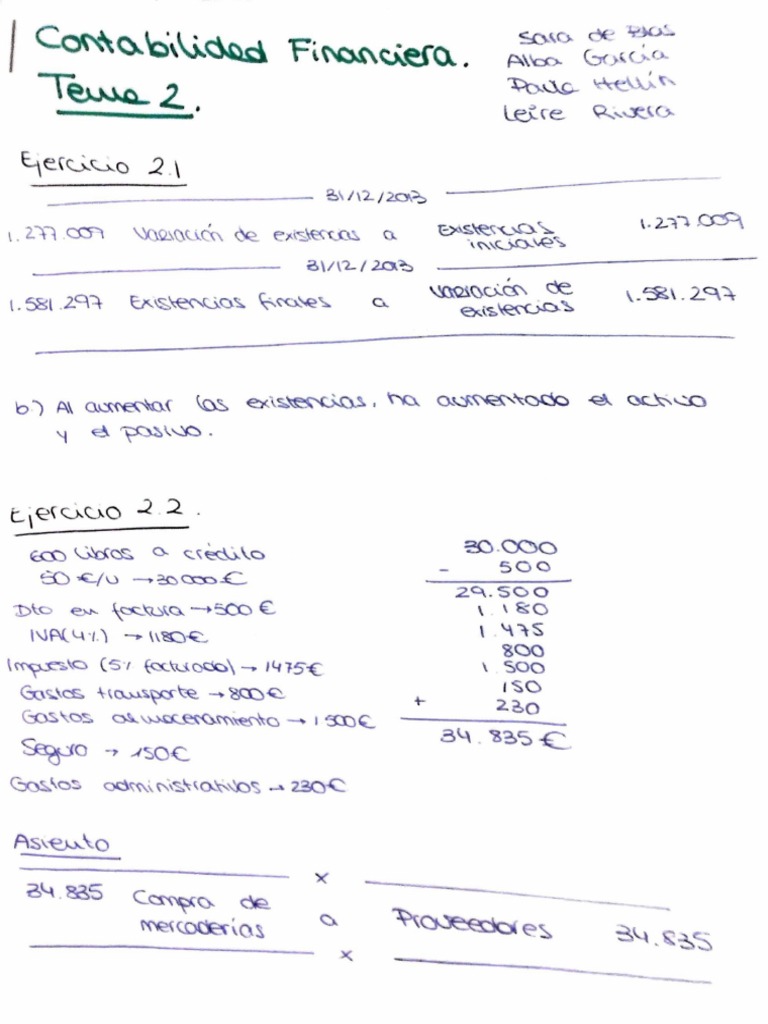 Contabilidad Financiera.
Tema 2.
Sara de Blas
Alba García
Paula Hellín
Leire Rivera
Ejercicio 2.1
31/12/2013
1.277.009 Variación de existencias a Existencias iniciales 1.277.009
31/12/2013
1.581.297 Existencias finales a Variación de existencias 1.581.297
b.) Al aumentar las existencias, ha aumentado el activo
y el pasivo.
Ejercicio 2.2.
600 libros a crédito
50 €/u → 30000€
Dto en factura → 500 €
IVA(4%) → 1180€
Impuesto (5% facturado) → 1475€
Gastos transporte → 800€
Gastos almacenamiento → 1500€
Seguro → 150€
Gastos administrativos → 230€
30.000
- 500
29.500
1.180
1.475
800
1.500
150
+ 230
34.835€
Asiento
x
34.835 Compra de mercaderías a Proveedores 34.835
x